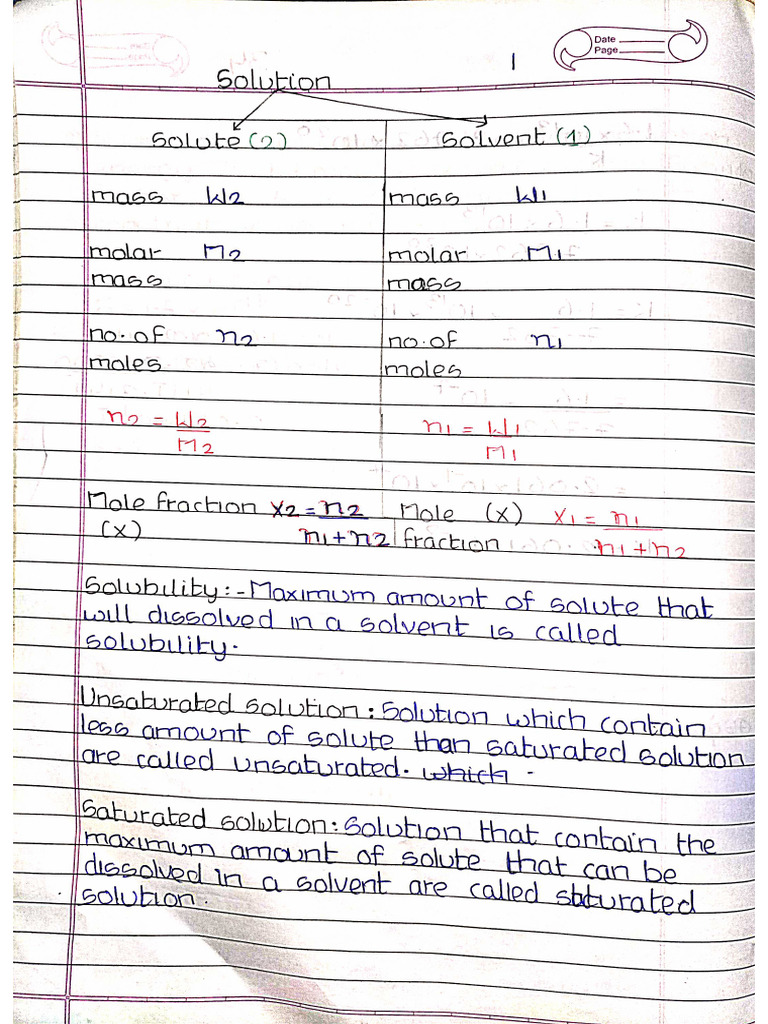 Date
Page
1
Solution
Solute (2) Solvent (1)
mass W2 mass W1
molar M2 molar M1
mass mass
no. of n2 no. of n1
moles moles
n2 = W2 n1 = W1
M2 M1
Mole fraction X2 = n2 Mole (X) X1 = n1
(X) n1 + n2 fraction n1 + n2
Solubility :- Maximum amount of solute that
will dissolved in a solvent is called
solubility.
Unsaturated solution : Solution which contain
less amount of solute than saturated solution
are called unsaturated. which
Saturated solution : Solution that contain the
maximum amount of solute that can be
dissolved in a solvent are called saturated
solution.